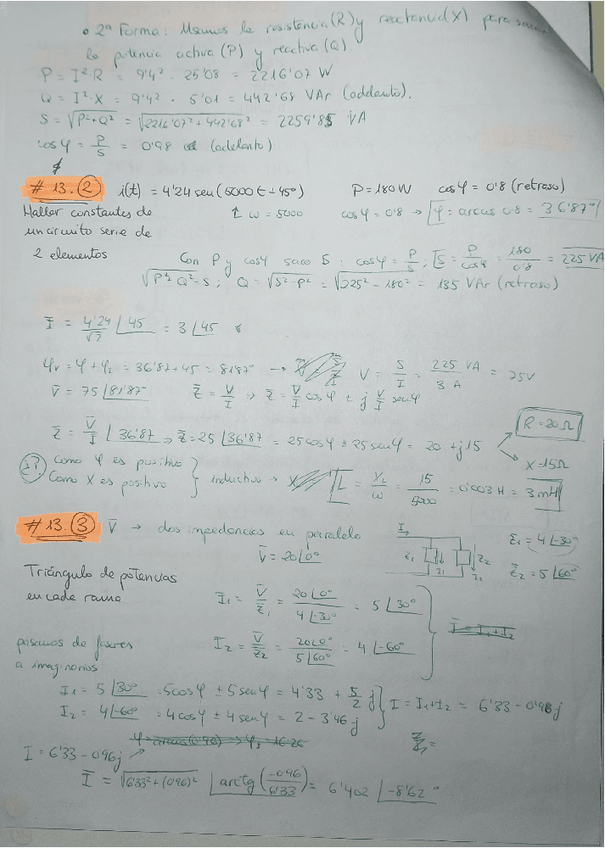 • 2ª Forma: Usamos la resistencia (R) y reactancia (X) para sacar
la potencia activa (P) y reactiva (Q)
P = I²·R = 9'4² · 25'08 = 2216'07 W
Q = I²·X = 9'4² · 5'01 = 442'68 VAr (adelanto).
S = √P²+Q² = √2216'07² + 442'68² = 2259'85 VA
cos φ = P/S = 0'98 (adelanto)
# 13.② i(t) = 4'24 sen (5000t + 45º) P = 180W cos φ = 0'8 (retraso)
Hallar constantes de ↑ ω = 5000 cos φ = 0'8 → φ = arccos 0.8 = 36'87º
un circuito serie de
2 elementos
Con P y cosφ saco S: cosφ = P/S ; S = P/cosφ = 180/0'8 = 225 VA
√P²+Q² = S ; Q = √S²-P² = √225² - 180² = 135 VAr (retraso)
I = 4'24/√2 ∠45 = 3 ∠45
φv = φ + φI = 36'87 + 45 = 81'87 → V = S/I = 225 VA/3 A = 75V
V = 75 ∠81'87º Z = V/I ⇒ Z = V/I cosφ ± j V/I senφ
Z = V/I ∠36'87 ⇒ Z = 25 ∠36'87 = 25cosφ ± 25senφ = 20 + j15
R = 20 Ω
X = 15Ω
¿? Como φ es positivo
Como X es positivo } inductivo → L = XL/ω = 15/5000 = 0'003 H = 3 mH
# 13.③ V → dos impedancias en paralelo
V = 20∠0º
I Z1 Z2 I1 I2
Z1 = 4∠-30º
Z2 = 5∠60º
Triángulo de potencias
en cada rama
I1 = V/Z1 = 20∠0º/4∠-30º = 5∠30º
I2 = V/Z2 = 20∠0º/5∠60º = 4∠-60º
I = I1 + I2
pasamos de fasores
a imaginarios
I1 = 5∠30º = 5cosφ ± 5senφ = 4'33 + 5/2 j
I2 = 4∠-60º = 4cosφ ± 4senφ = 2 - 3'46j } I = I1+I2 = 6'33 - 0'96j
I = 6'33 - 0'96j
I = √6'33² + (0'96)² ∠arctg (-0'96/6'33) = 6'402 ∠-8'62º